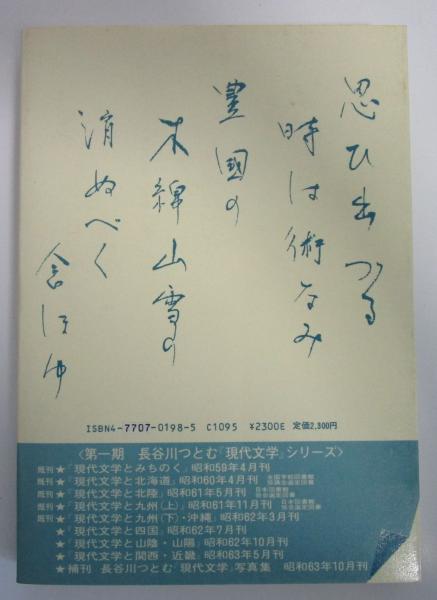 思ひ出づる
時は術なみ
豊国の
木綿山雪の
消ぬべく
念ほゆ
ISBN4-7707-0198-5 C1095 ¥2300E 定価2,300円
〈第一期 長谷川つとむ「現代文学」シリーズ〉
既刊★「現代文学とみちのく」昭和59年4月刊
既刊★「現代文学と北海道」昭和60年4月刊
既刊★「現代文学と北陸」昭和61年5月刊
既刊★「現代文学と九州(上)」昭和61年11月刊
既刊★「現代文学と九州(下)・沖縄」昭和62年3月刊
★「現代文学と四国」昭和62年7月刊
★「現代文学と山陰・山陽」昭和62年10月刊
★「現代文学と関西・近畿」昭和63年5月刊
★補刊 長谷川つとむ「現代文学」写真集 昭和63年10月刊